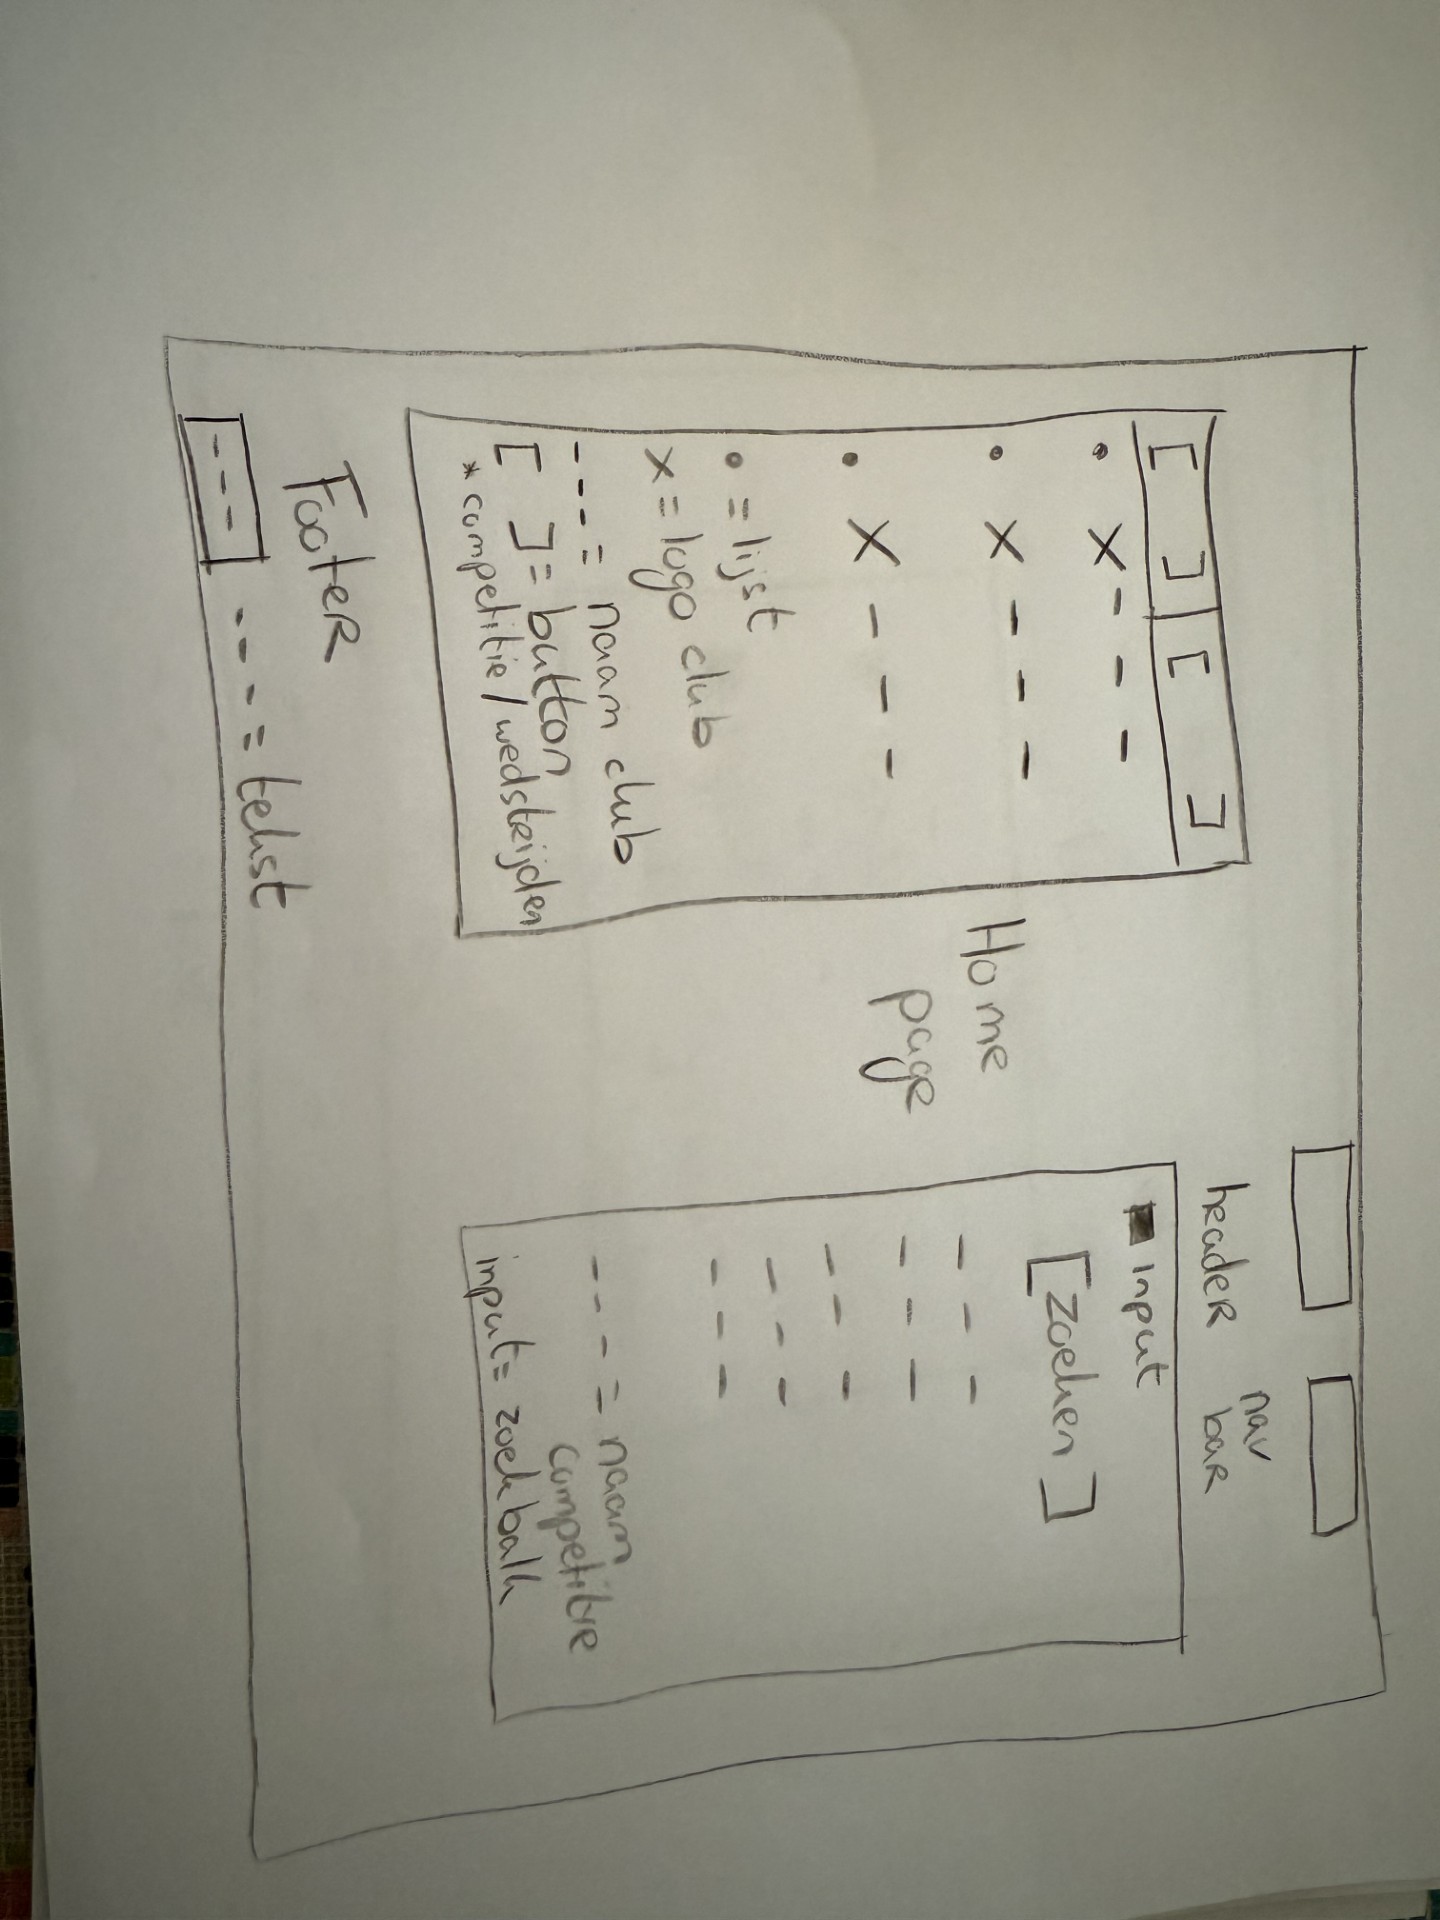 header
nav
bar
[ ] [ ]
• X - - -
• X - - -
• X - - -
• = lijst
x = logo club
- - - = naam club
[ ] = button
* competitie / wedstrijden
Home
page
input
[zoeken]
- - -
- - -
- - -
- - -
- - -
- - - = naam
competitie
input = zoekbalk
Footer
- - -
- - - - = tekst